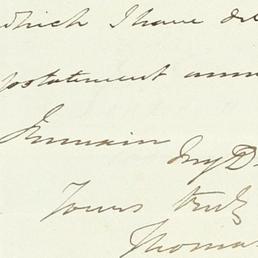 which I have
statement
I remain
My D
Yours truly
Thomas